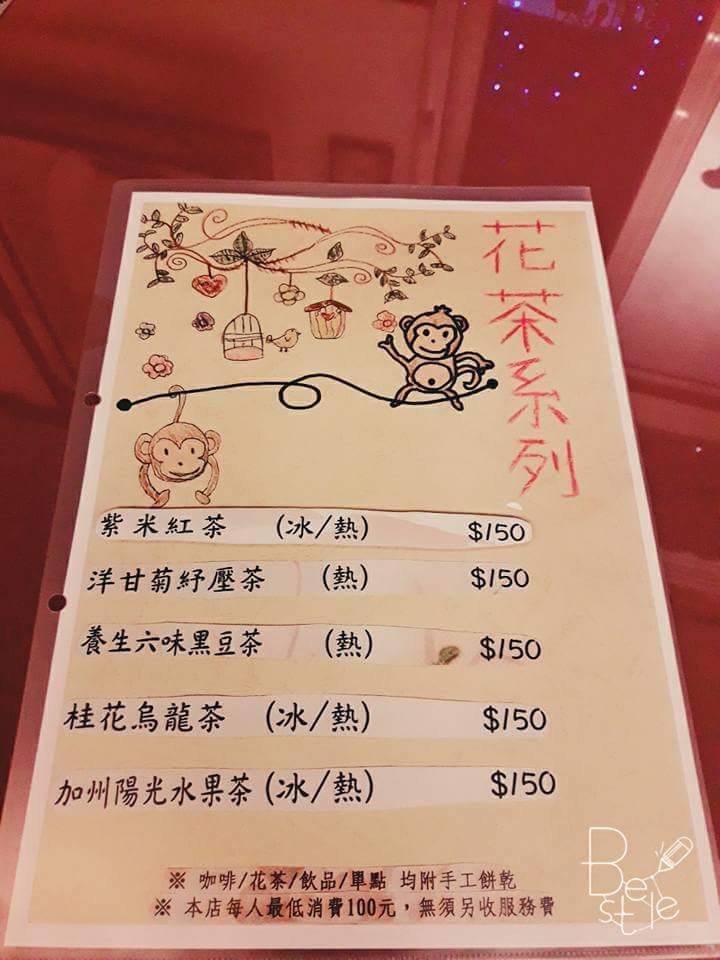 花茶系列
紫米紅茶 (冰/熱) $150
洋甘菊紓壓茶 (熱) $150
養生六味黑豆茶 (熱) $150
桂花烏龍茶 (冰/熱) $150
加州陽光水果茶 (冰/熱) $150
※ 咖啡/花茶/飲品/單點 均附手工餅乾
※ 本店每人最低消費100元，無須另收服務費
Be
style